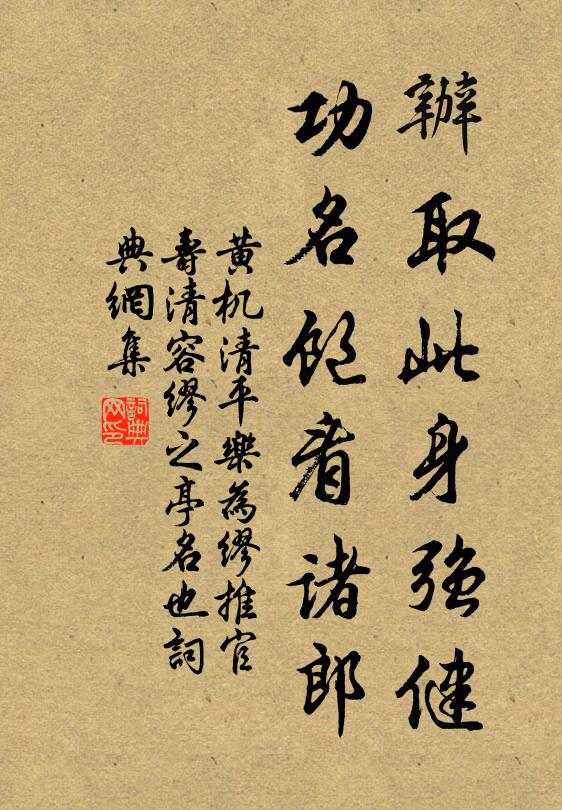 辦取此身強健
功名飽看諸郎
黃机清平樂為繆推官
壽清容繆之亭名也詞
典網集
詞典网印